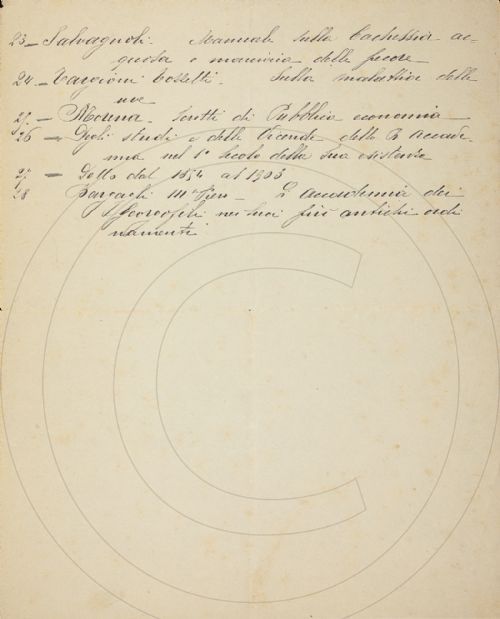 23_ Salvagnoli. Manuale sulla Cachessia ac-
quosa o marciaia delle pecore_
24_ Targioni Tozzetti_ Sulla malattia delle
uve
25_ Scritti di Pubblica economia
26_ Degli studi e delle Vicende della R. Accade-
mia nel 1° Secolo della Sua esistenza
27_ dal 1854 al 1903
28 Bargagli M. Piero_ L'accademia dei
Georgofili nei suoi più antichi ordi
namenti